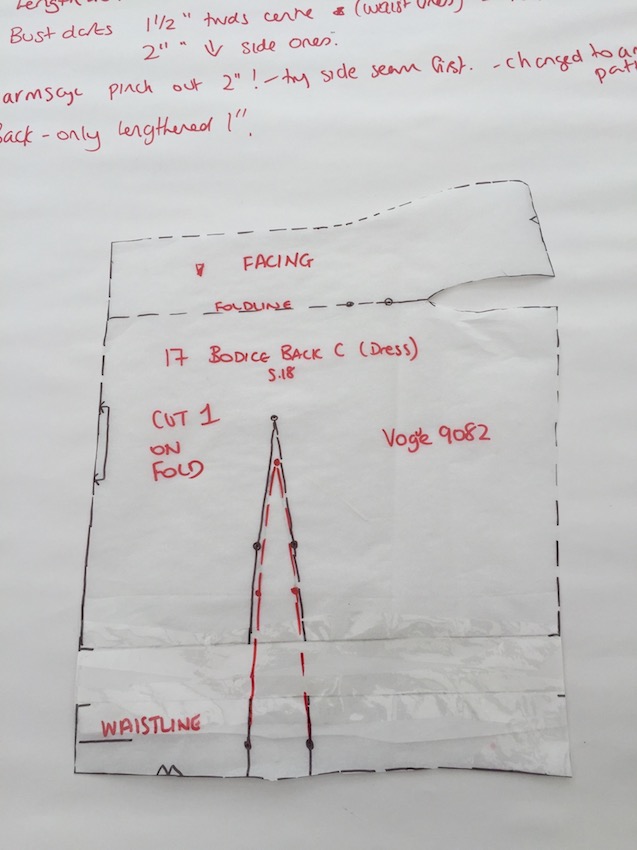 Bust darts 1½" twds centre (waist ones)
2" " ↓ side ones.
armscye pinch out 2"! - try side seam first. - changed to
Back - only lengthened 1".
FACING
FOLDLINE
17 BODICE BACK C (Dress)
S.18
CUT 1
ON
FOLD
Vogue 9082
WAISTLINE